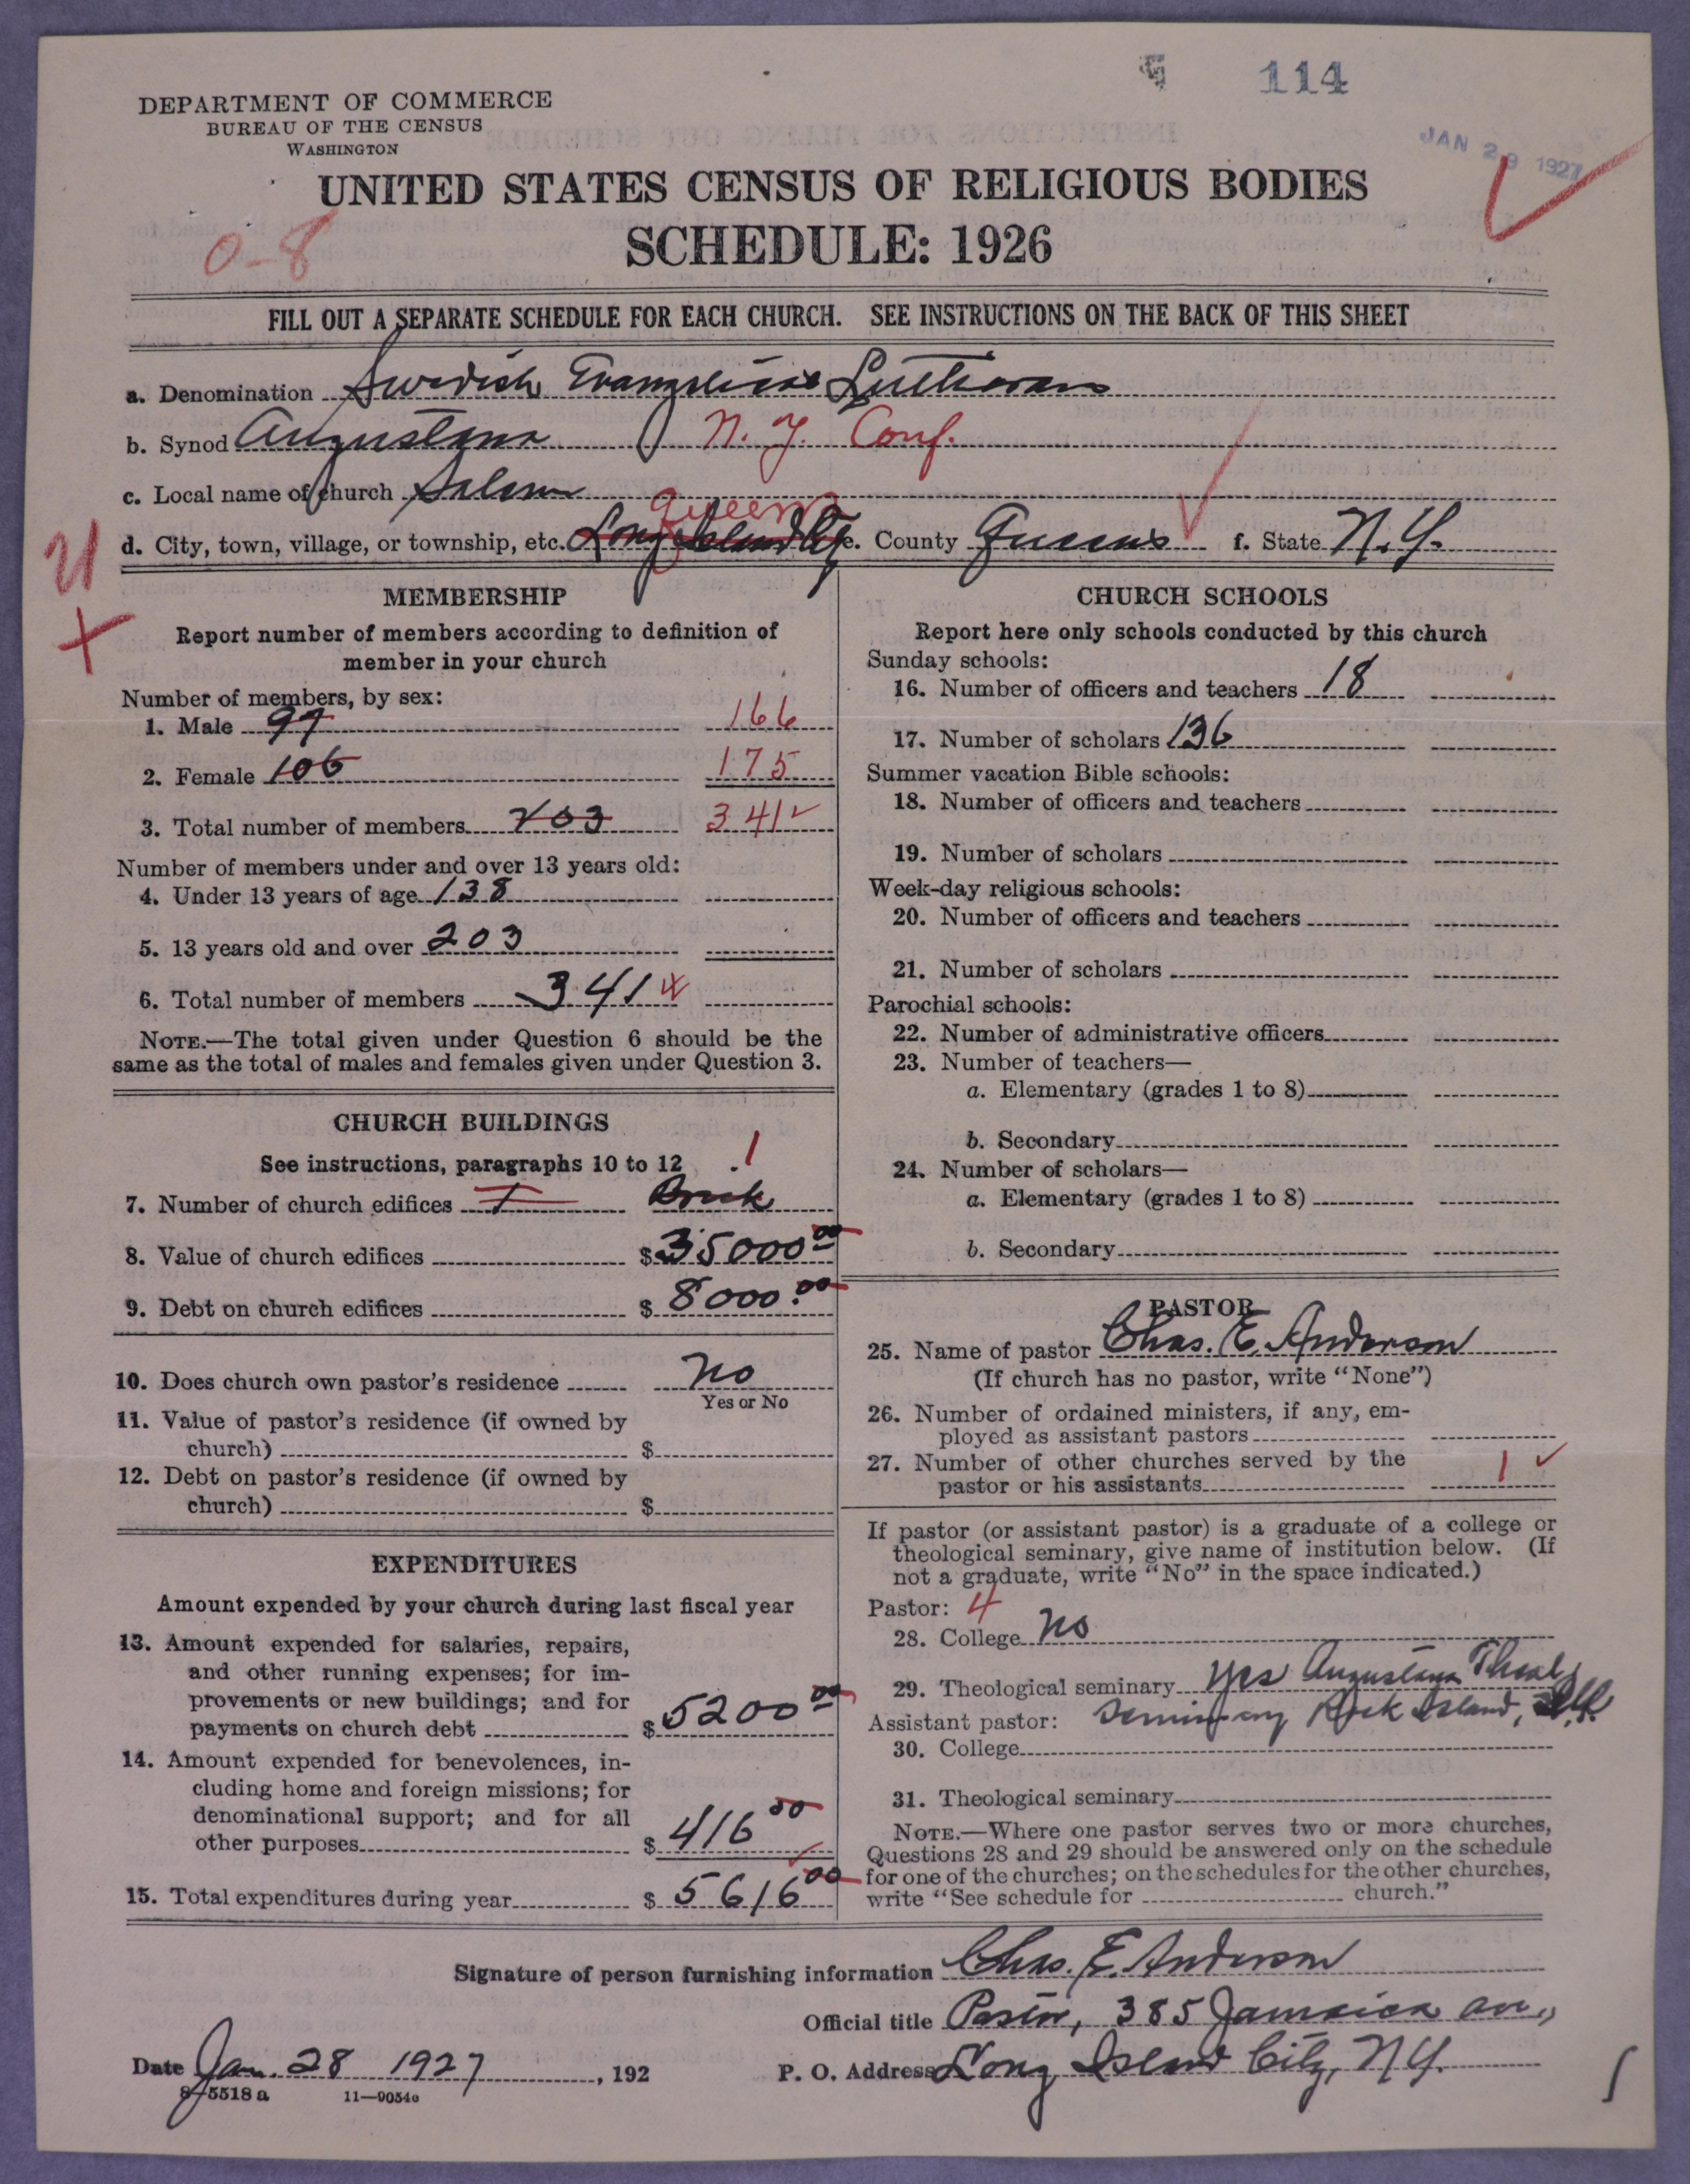 114
JAN 28 1927
DEPARTMENT OF COMMERCE
BUREAU OF THE CENSUS
WASHINGTON
UNITED STATES CENSUS OF RELIGIOUS BODIES
SCHEDULE: 1926
0-8
FILL OUT A SEPARATE SCHEDULE FOR EACH CHURCH. SEE INSTRUCTIONS ON THE BACK OF THIS SHEET
a. Denomination Swedish Evangelical Lutheran
b. Synod Augustana N. Y. Conf.
c. Local name of church Salem
Queens
d. City, town, village, or township, etc. Long Island City e. County Queens f. State N.Y.
MEMBERSHIP
Report number of members according to definition of
member in your church
Number of members, by sex:
1. Male 97 166
2. Female 106 175
3. Total number of members 203 341
Number of members under and over 13 years old:
4. Under 13 years of age 138
5. 13 years old and over 203
6. Total number of members 341
NOTE.—The total given under Question 6 should be the
same as the total of males and females given under Question 3.
CHURCH BUILDINGS
See instructions, paragraphs 10 to 12
1
7. Number of church edifices 1 Brick
8. Value of church edifices $35000.00
9. Debt on church edifices $8000.00
10. Does church own pastor's residence No
Yes or No
11. Value of pastor's residence (if owned by
church) $
12. Debt on pastor's residence (if owned by
church) $
EXPENDITURES
Amount expended by your church during last fiscal year
13. Amount expended for salaries, repairs,
and other running expenses; for im-
provements or new buildings; and for
payments on church debt $5200 00
14. Amount expended for benevolences, in-
cluding home and foreign missions; for
denominational support; and for all
other purposes $416 00
15. Total expenditures during year $5616 00
CHURCH SCHOOLS
Report here only schools conducted by this church
Sunday schools:
16. Number of officers and teachers 18
17. Number of scholars 136
Summer vacation Bible schools:
18. Number of officers and teachers
19. Number of scholars
Week-day religious schools:
20. Number of officers and teachers
21. Number of scholars
Parochial schools:
22. Number of administrative officers
23. Number of teachers—
a. Elementary (grades 1 to 8)
b. Secondary
24. Number of scholars—
a. Elementary (grades 1 to 8)
b. Secondary
PASTOR
25. Name of pastor Chas. E. Anderson
(If church has no pastor, write "None")
26. Number of ordained ministers, if any, em-
ployed as assistant pastors
27. Number of other churches served by the
pastor or his assistants 1
If pastor (or assistant pastor) is a graduate of a college or
theological seminary, give name of institution below. (If
not a graduate, write "No" in the space indicated.)
Pastor: 4
28. College No
29. Theological seminary Yes Augustana Theol.
Assistant pastor: Seminary Rock Island, Ill.
30. College
31. Theological seminary
NOTE.—Where one pastor serves two or more churches,
Questions 28 and 29 should be answered only on the schedule
for one of the churches; on the schedules for the other churches,
write "See schedule for church."
Signature of person furnishing information Chas. E. Anderson
Official title Pastor, 385 Jamaica av.,
Date Jan. 28 1927, 192 P. O. Address Long Island City, N.Y.
8-5518 a 11—9054a